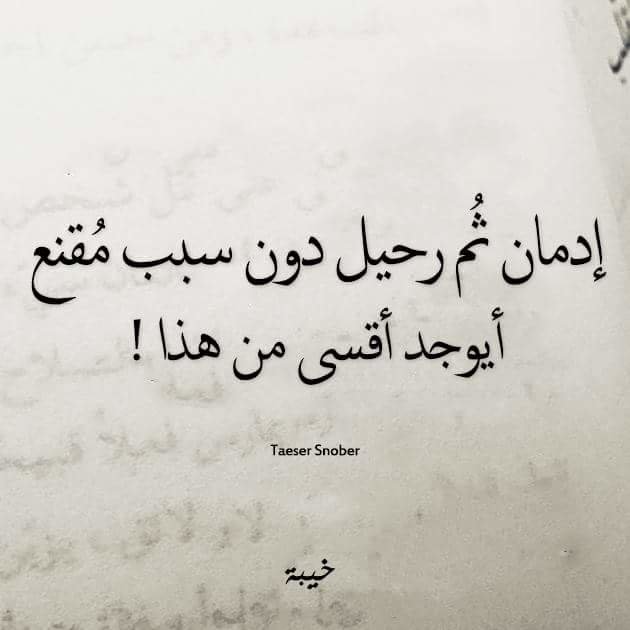 إدمان ثُم رحيل دون سبب مُقنع
أيوجد أقسى من هذا !
Taeser Snober
خيبة